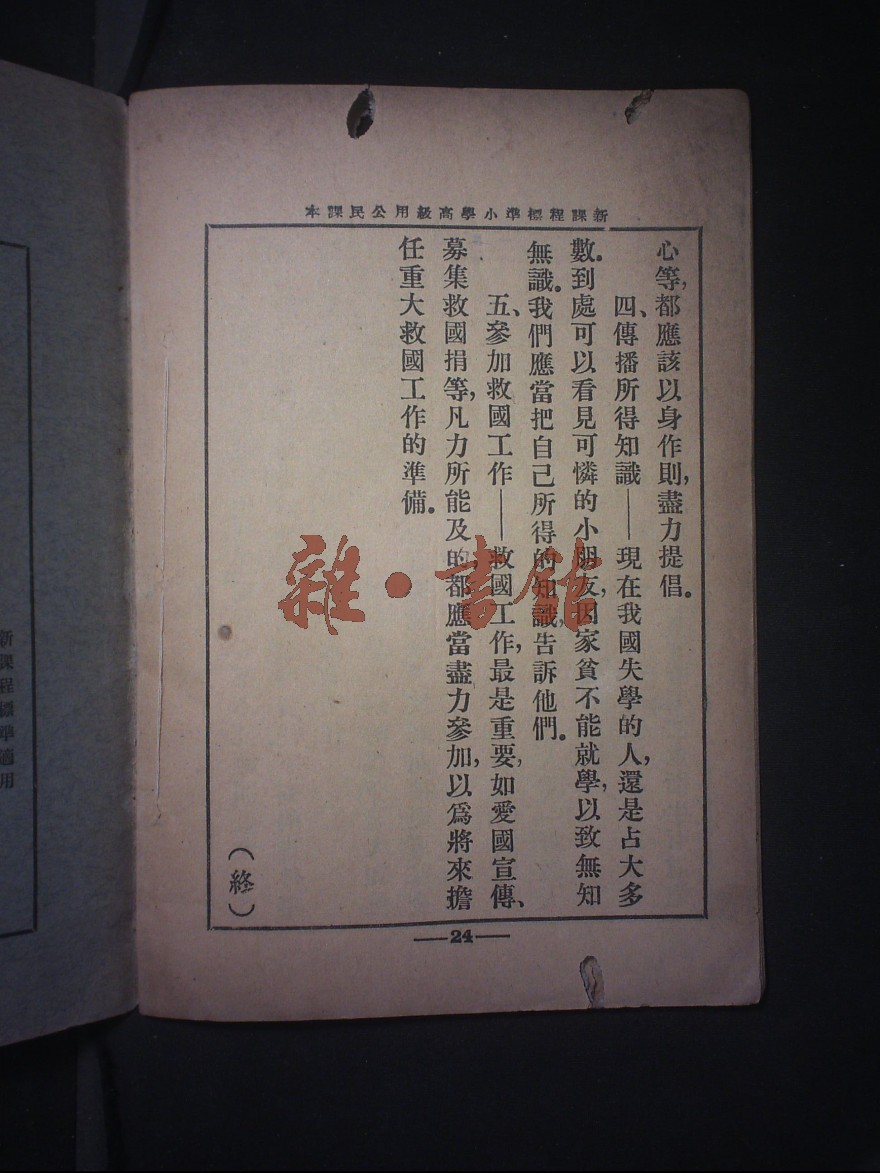 新課程標準小學高級用公民課本
心等，都應該以身作則，盡力提倡。
四、傳播所得知識——現在我國失學的人，還是占大多
數。到處可以看見可憐的小朋友，因家貧不能就學，以致無知
無識。我們應當把自己所得的知識，告訴他們。
五、參加救國工作——救國工作，最是重要，如愛國宣傳、
募集救國捐等，凡力所能及的都應當盡力參加，以爲將來擔
任重大救國工作的準備。
（終）
—24—
雜·書館
新課程標準適用